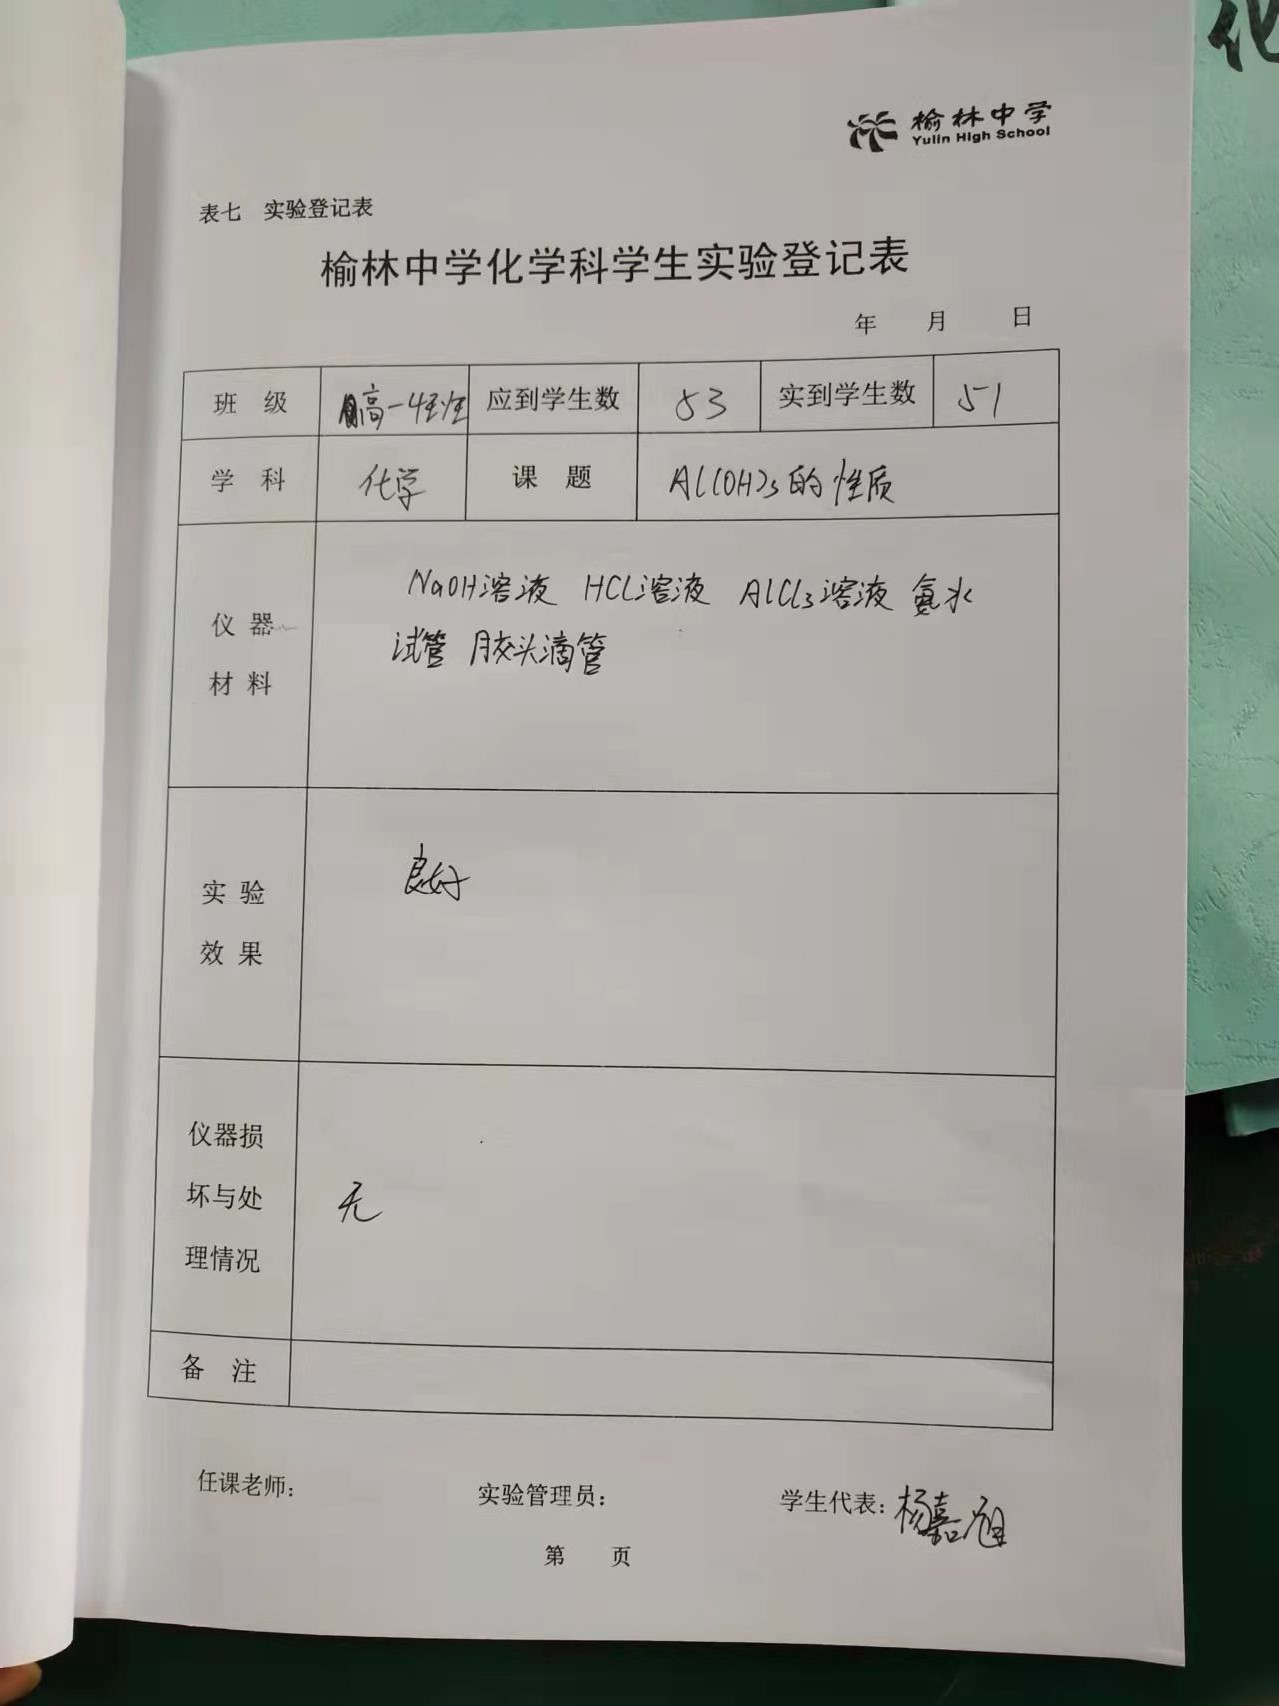 化
榆林中学
Yulin High School
表七 实验登记表
榆林中学化学科学生实验登记表
年 月 日
班 级 高一4班 应到学生数 53 实到学生数 51
学 科 化学 课 题 Al(OH)3的性质
仪 器
材 料
NaOH溶液 HCl溶液 AlCl3溶液 氨水
试管 胶头滴管
实 验
效 果
良好
仪器损
坏与处
理情况
无
备 注
任课老师: 实验管理员: 学生代表: 杨嘉
第 页